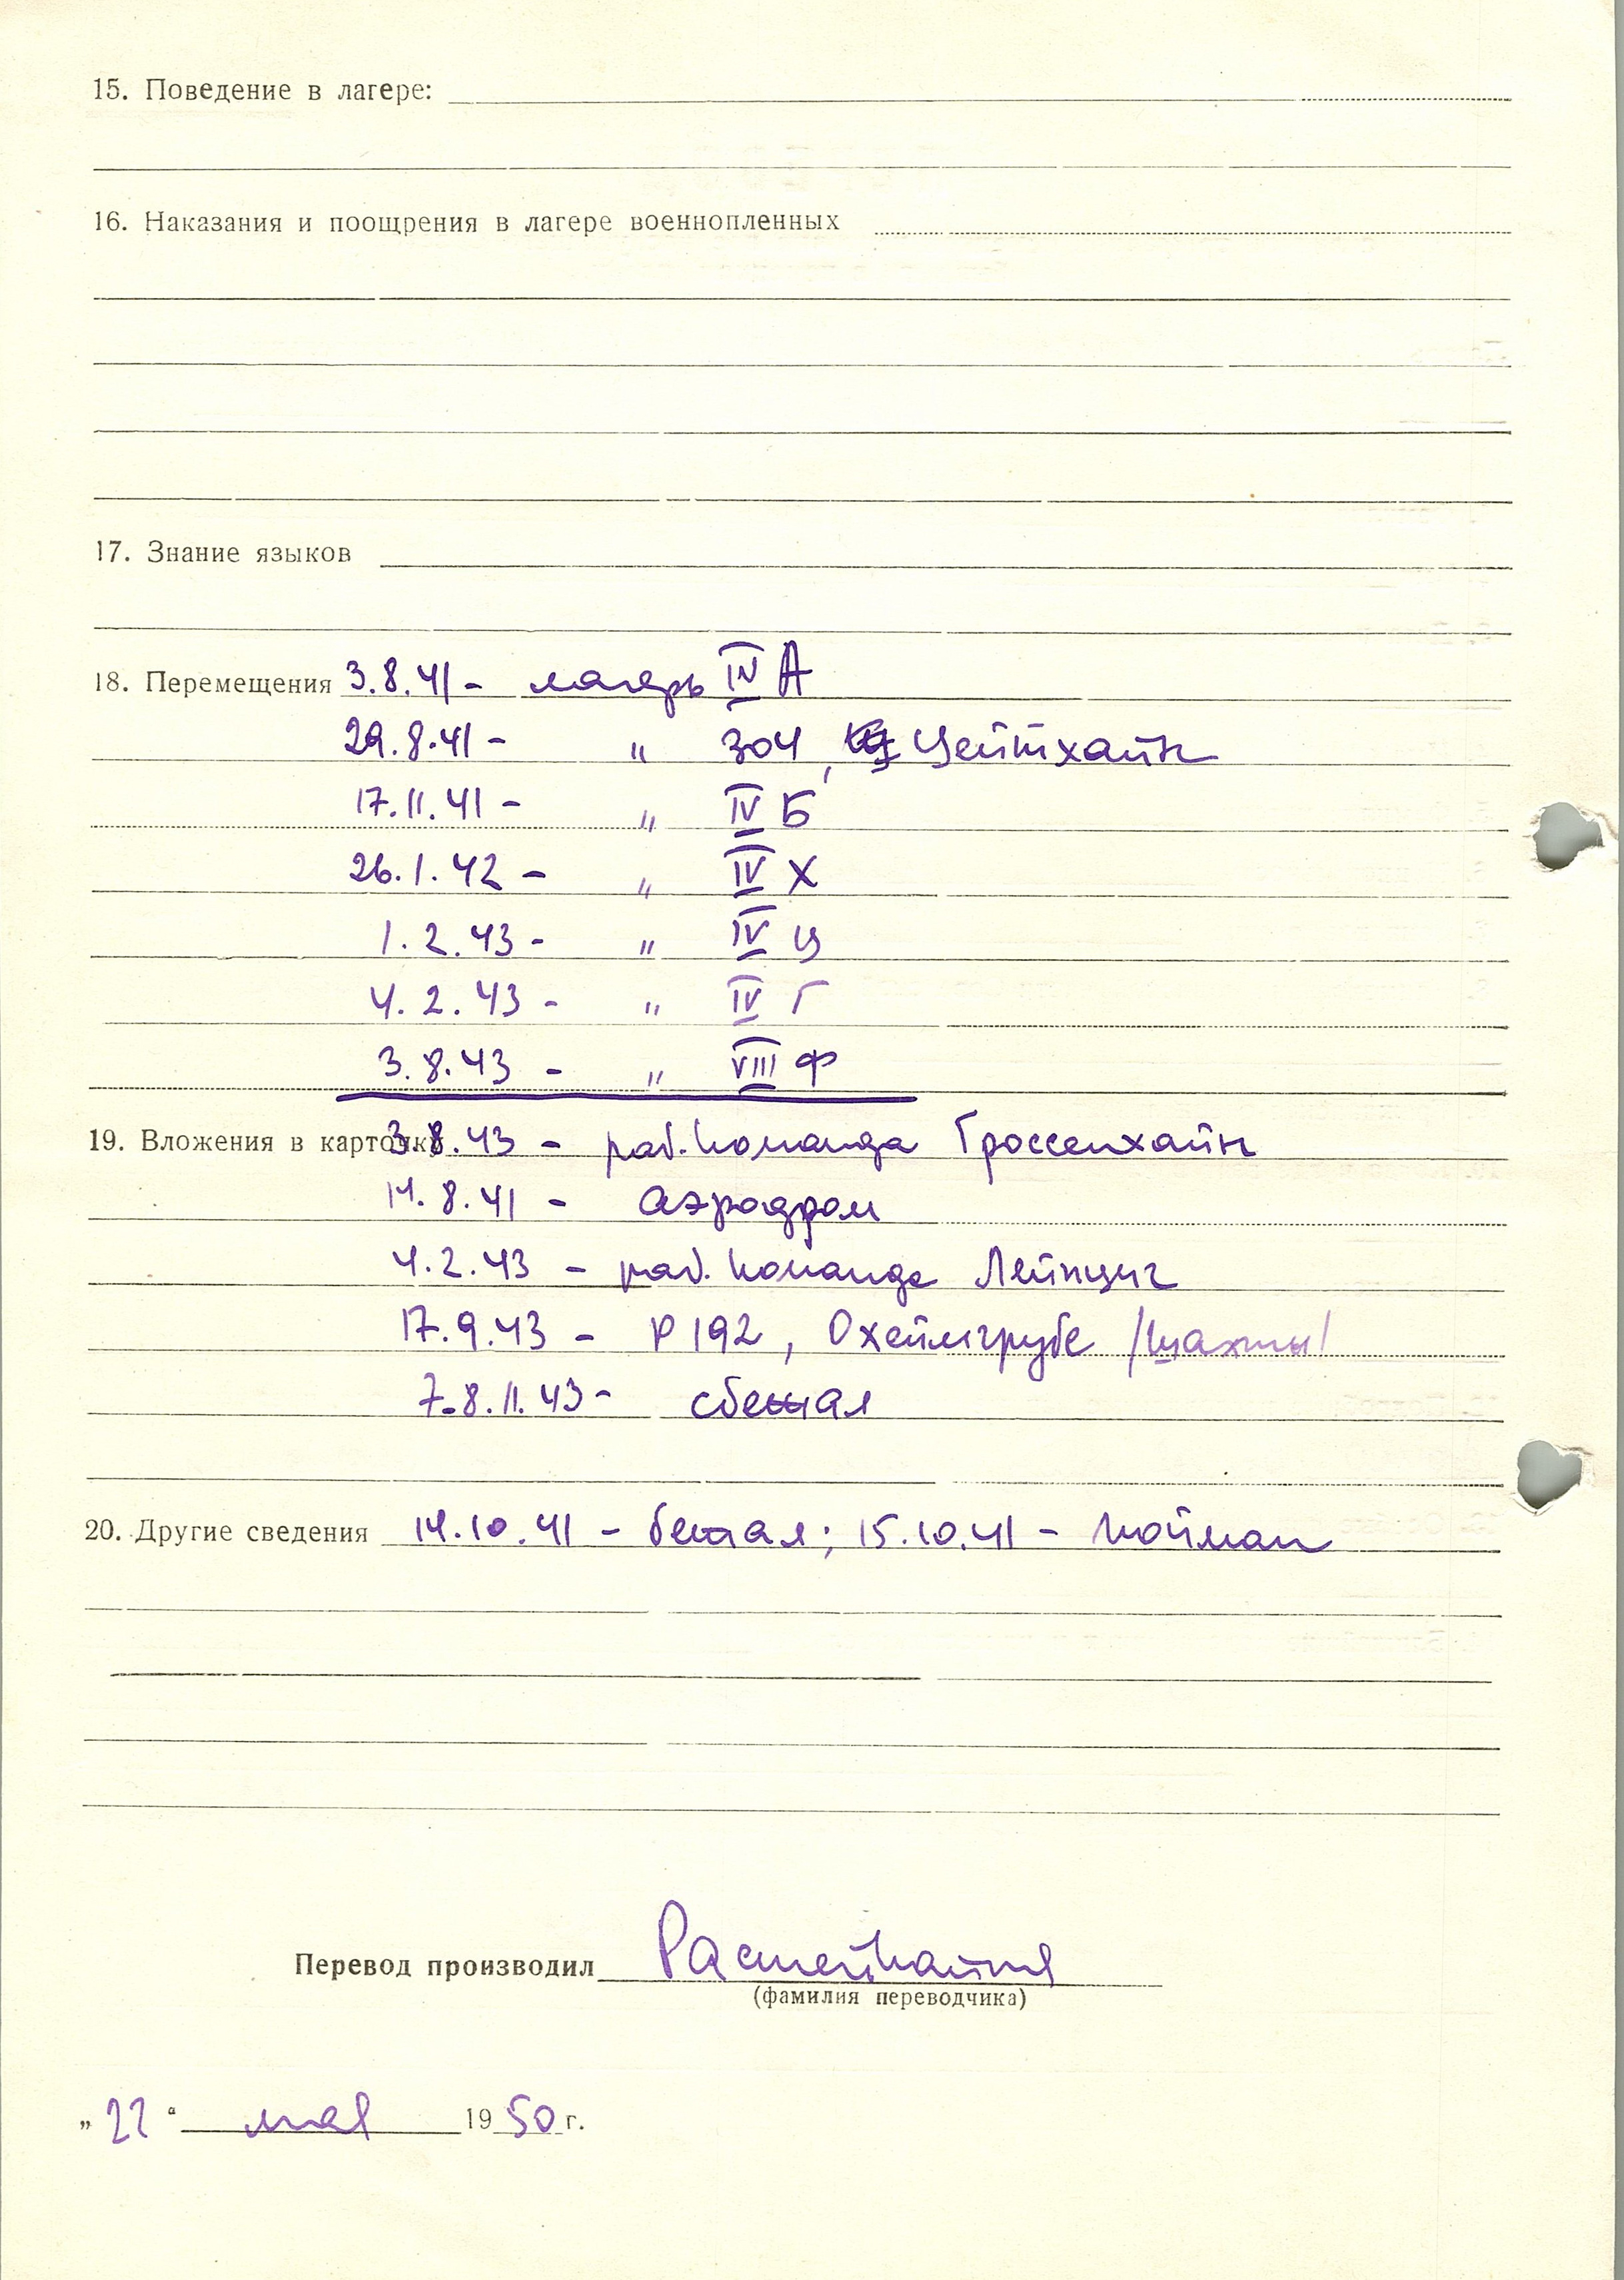 15. Поведение в лагере:
16. Наказания и поощрения в лагере военнопленных
17. Знание языков
18. Перемещения 3.8.41 - лагерь IV А
29.8.41 - " 304, Цейтхайн
17.11.41 - " IV Б
26.1.42 - " IV Х
1.2.43 - " IV Ц
4.2.43 - " IV Г
3.8.43 - " VIII Ф
19. Вложения в карточку 3.8.43 - раб. команда Гроссенхайн
14.8.41 - аэродром
4.2.43 - раб. команда Лейпциг
17.9.43 - Р 192, Охеймгрубе /шахты/
7-8.11.43 - сбежал
20. Другие сведения 14.10.41 - бежал; 15.10.41 - пойман
Перевод производил
(фамилия переводчика)
„22“ мая 1950 г.